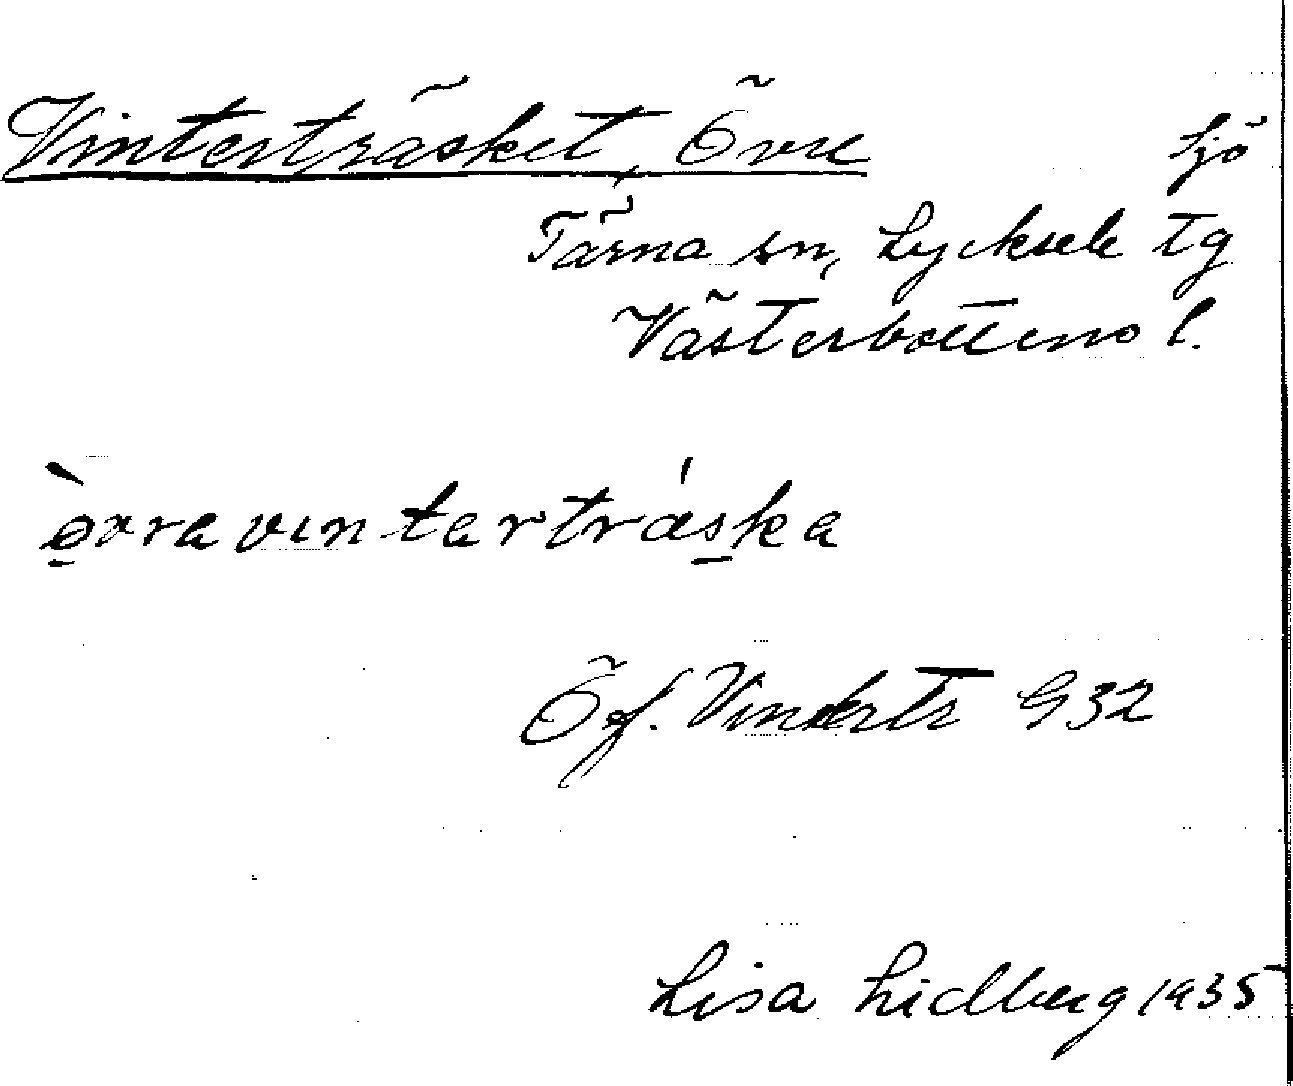 Vinterträsket, Övre sjö
Tärna sn, Lycksele tg
Västerbottens l.
ə̀vravıntərtrǽska
Öf. Vindertr G32
Lisa Lidberg 1935